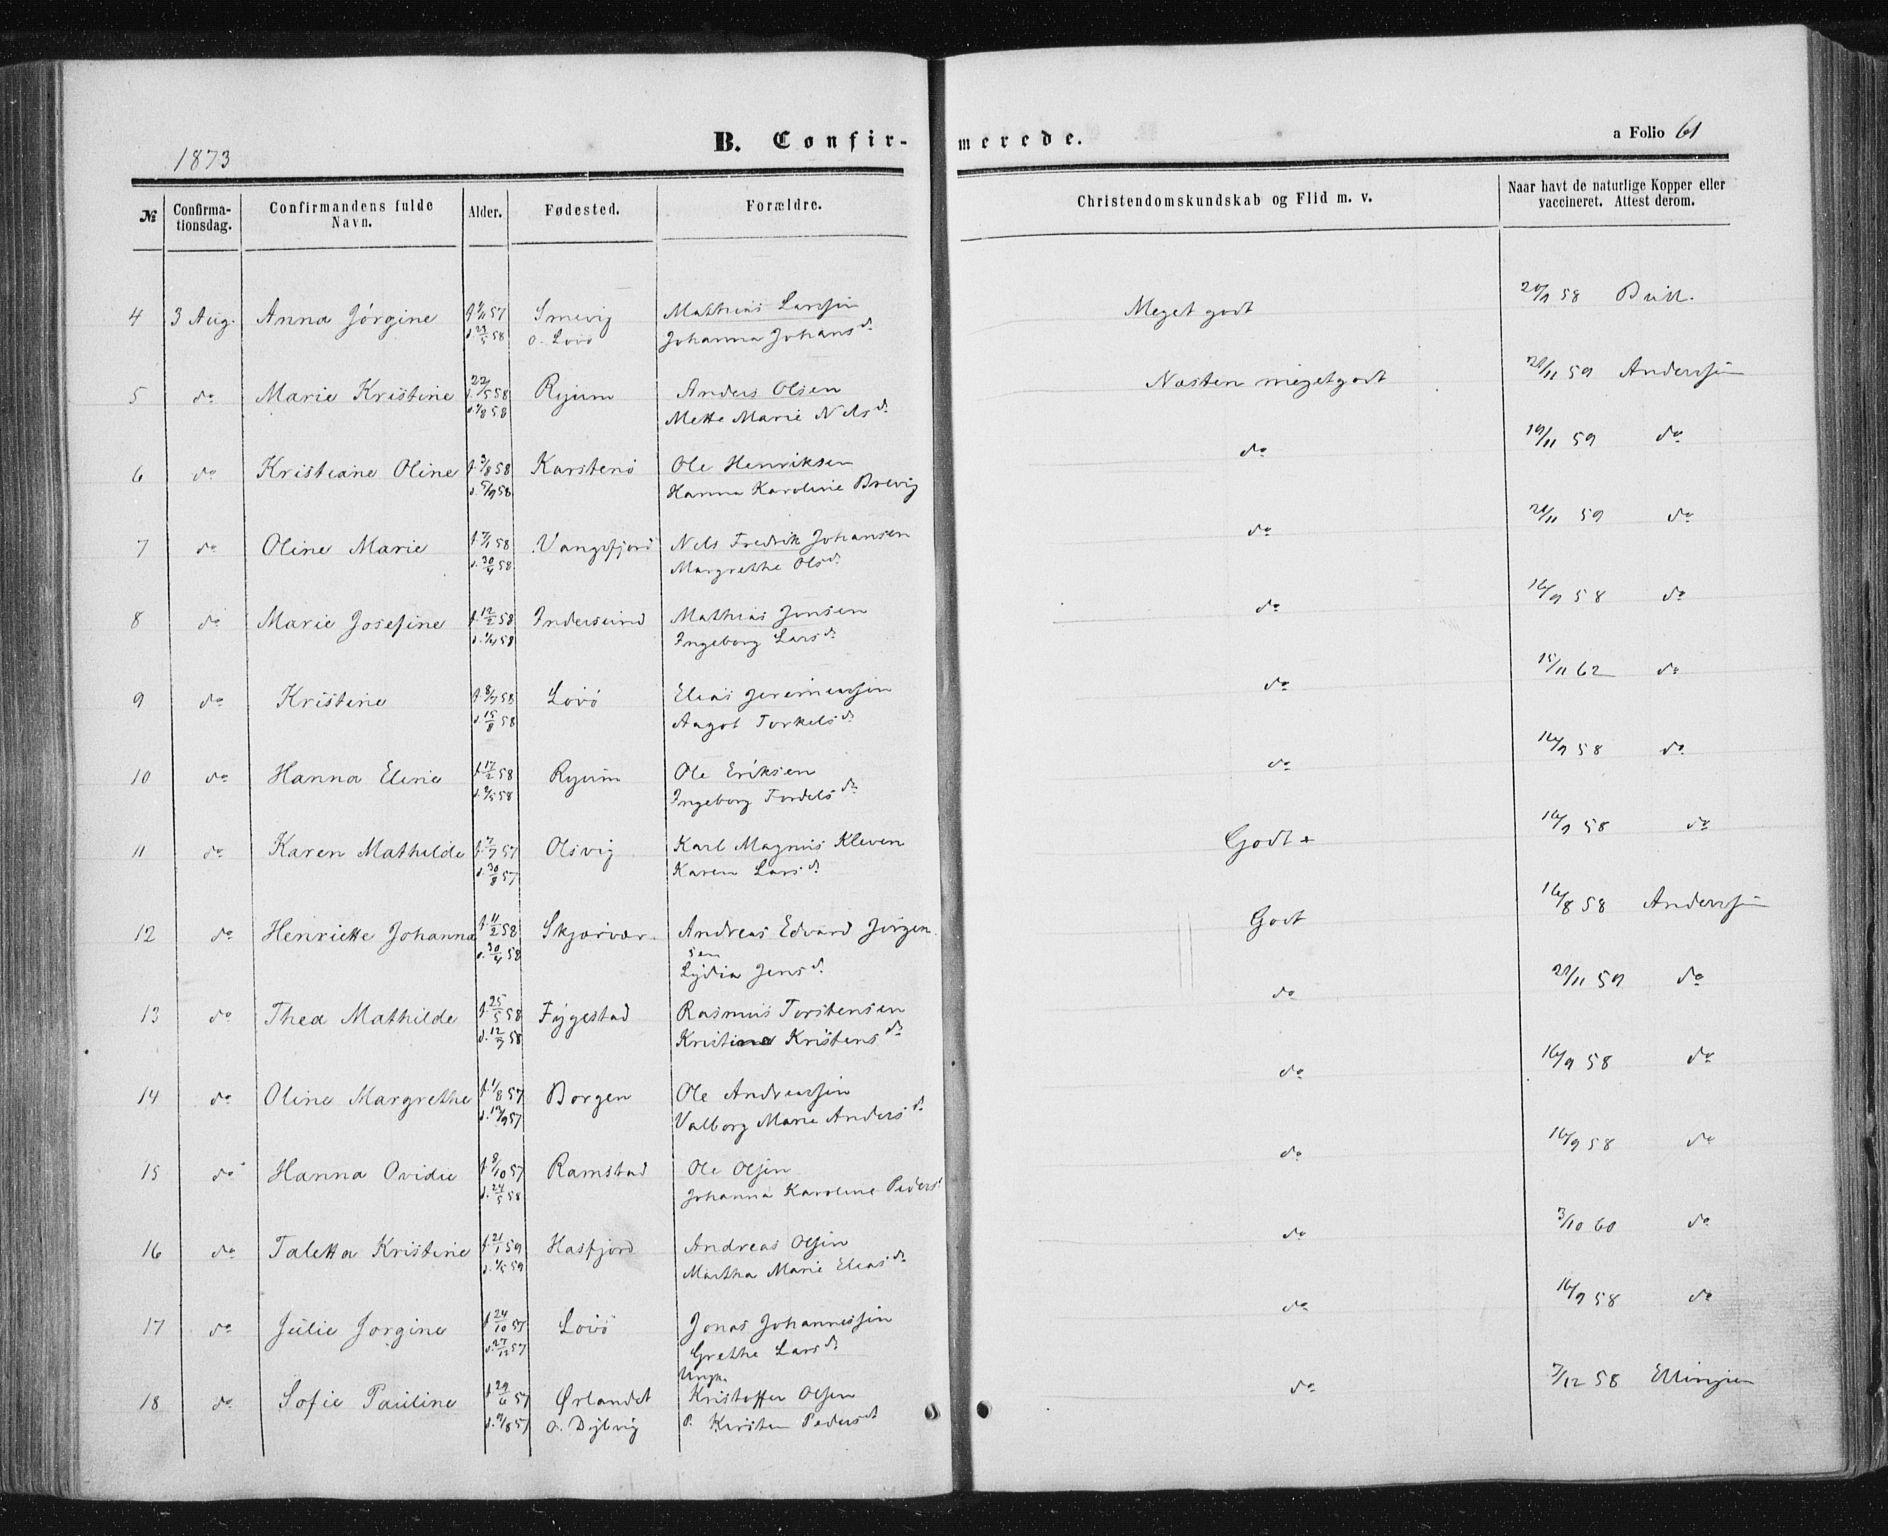 1873
B. Confirmerede.
a Folio 61
№ Confirmationsdag. Confirmandens fulde Navn. Alder. Fødested. Forældre. Christendomskundskab og Flid m. v. Naar havt de naturlige Kopper eller vaccineret. Attest derom.
4 3 Aug. Anna Jørgine Smevig Mathias Larssen Meget godt 58
d. 23/5 58 o. Lovø Johanna Johansd.
5 do Marie Kristine 22/5 58 Ryum Anders Olsen Næsten meget godt 59 Anderssen
58 Mette Marie Nelsd.
6 do Kristiane Oline f. 3/8 58 Karstenø Ole Henriksen do 19/11 59 do
d. 5/9 58 Hanna Karoline Brevig
7 do Oline Marie 58 Vangsfjord Nels Fredrik Johansen do 59 do
d. 30/4 58 Margrethe Olsd.
8 do Marie Josefine f. 12/2 58 Indersund Mathias Jonsen do 16/9 58 do
58 Ingeborg Larsd.
9 do Kristine f. 8/7 58 Lovø Elias Jeremiassen do 15/11 62 do
d. 15/8 58 Aagot Torkelsd.
10 do Hanna Eline f. 17/2 58 Ryum Ole Eriksen do 16/9 58 do
58 Ingeborg Tordelsd.
11 do Karen Mathilde 57 Olsvig Karl Magnus Kleven Godt + 16/9 58 do
d. 30/8 57 Karen Larsd.
12 do Henriette Johanna 58 Skjærvær Andreas Edvard Jörgen Godt 16/8 58 Anderssen
d. 30/4 58 sen
Lydia Jensd.
13 do Thea Mathilde f. 25/5 58 Fygestad Rasmus Torstensen do 59 do
d. 12/7 58 Kristina Kristensd.
14 do Oline Margrethe f. 1/8 57 Borgen Ole Andreassen do 16/9 58 do
57 Valborg Marie Andersd.
15 do Hanna Ovidie 57 Ramstad Ole Olsen do 16/9 58 do
d. 24/5 58 Johanna Karoline Peders
16 do Taletta Kristine f. 21/1 59 Hasfjord Andreas Olsen do 3/10 60 do
59 Martha Marie Eliasd.
17 do Julie Jorgine f. 24/10 57 Lovø Jonas Johannessen do 16/9 58 do
d. 27/12 57 Grethe Larsd.
Ungk.
18 do Sofie Pauline f. 29/6 57 Ørlandet Kristoffer Olsen do 7/12 58 Ellingsen
57 o. Dybvig P. Kirsten Pedersd.